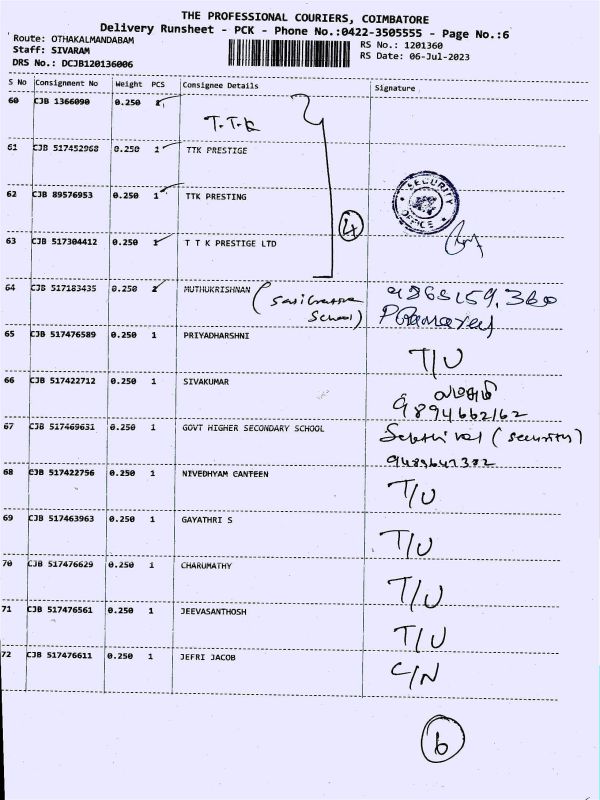 THE PROFESSIONAL COURIERS, COIMBATORE
Delivery Runsheet - PCK - Phone No.:0422-3505555 - Page No.:6
Route: OTHAKALMANDABAM
RS No.: 1201360
Staff: SIVARAM
RS Date: 06-Jul-2023
DRS No.: DCJB120136006
S No Consignment No Weight PCS Consignee Details Signature
60 CJB 1366090 0.250 1
T.T.K
61 CJB 517452968 0.250 1 TTK PRESTIGE
SECURITY OFFICE
62 CJB 89576953 0.250 1 TTK PRESTING
4
63 CJB 517304412 0.250 1 T T K PRESTIGE LTD
64 CJB 517183435 0.250 1 MUTHUKRISHNAN
School)
65 CJB 517476589 0.250 1 PRIYADHARSHNI T/U
66 CJB 517422712 0.250 1 SIVAKUMAR
9894662162
67 CJB 517469631 0.250 1 GOVT HIGHER SECONDARY SCHOOL (security)
68 CJB 517422756 0.250 1 NIVEDHYAM CANTEEN T/U
69 CJB 517463963 0.250 1 GAYATHRI S T/U
70 CJB 517476629 0.250 1 CHARUMATHY T/U
71 CJB 517476561 0.250 1 JEEVASANTHOSH T/U
72 CJB 517476611 0.250 1 JEFRI JACOB C/N
6